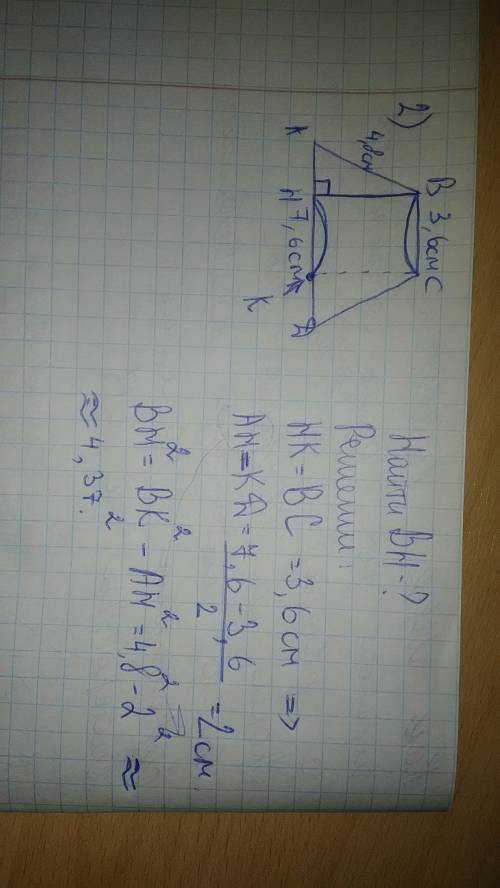 2)
B 3,6см C
4,8см
A H 7,6см K D
Найти BH-?
Решение:
HK = BC = 3,6 см ⇒
AH = KD = 7,6-3,6 / 2 = 2 см.
BH² = BK² - AH² = 4,8² - 2² ≈
≈ 4,37.²